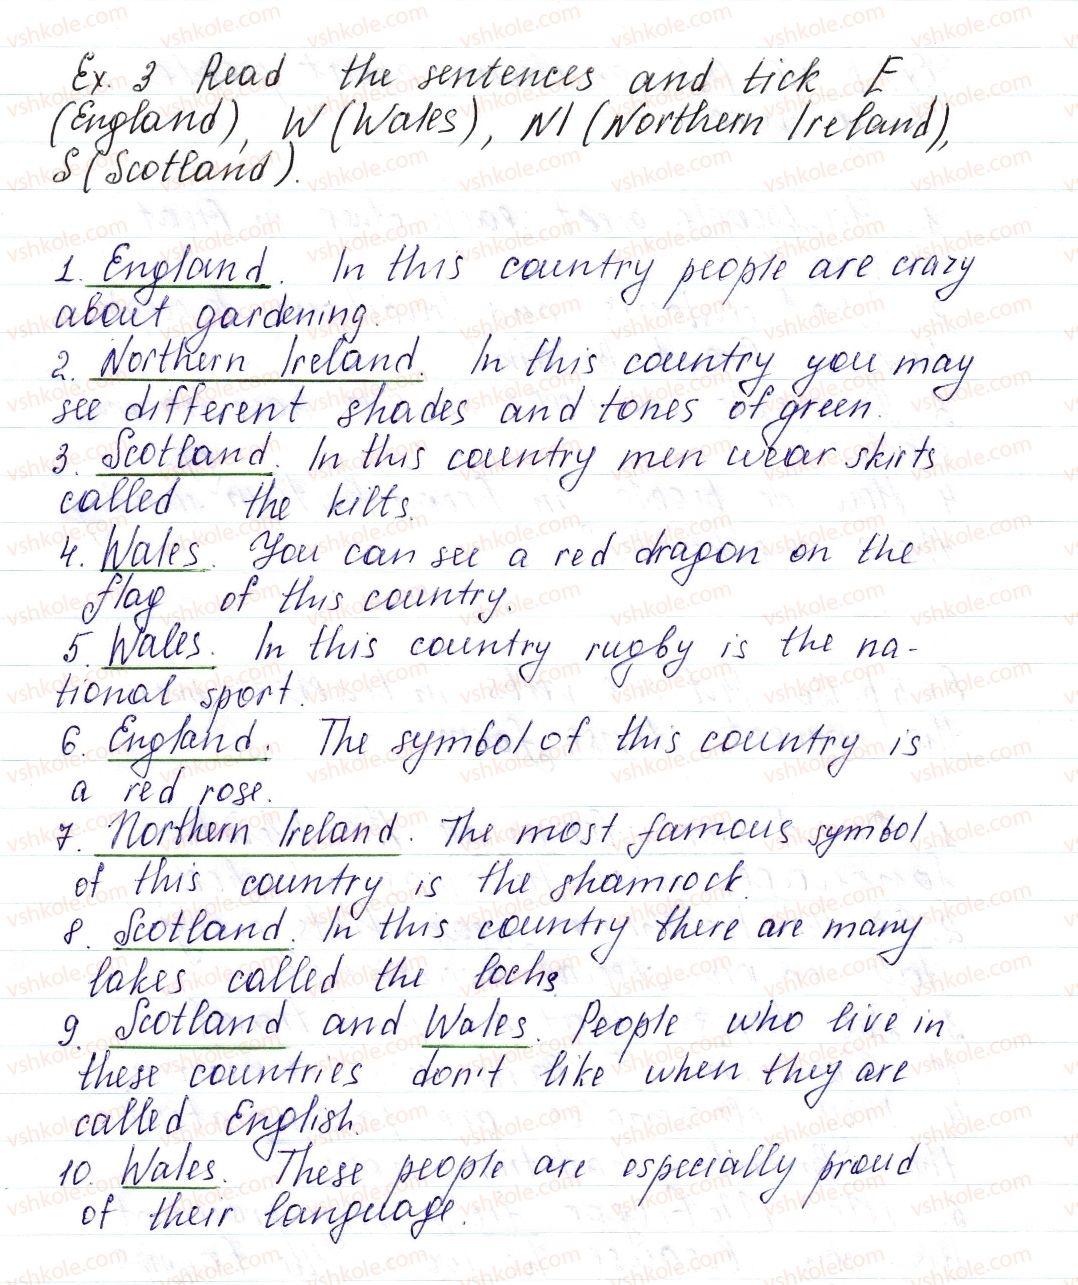 Ex. 3 Read the sentences and tick E
(England), W (Wales), NI (Northern Ireland),
S (Scotland).
1. England. In this country people are crazy
about gardening.
2. Northern Ireland. In this country you may
see different shades and tones of green.
3. Scotland. In this country men wear skirts
called the kilts.
4. Wales. You can see a red dragon on the
flag of this country.
5. Wales. In this country rugby is the na-
tional sport.
6. England. The symbol of this country is
a red rose.
7. Northern Ireland. The most famous symbol
of this country is the shamrock.
8. Scotland. In this country there are many
lakes called the lochs.
9. Scotland and Wales. People who live in
these countries don't like when they are
called English.
10. Wales. These people are especially proud
of their language.